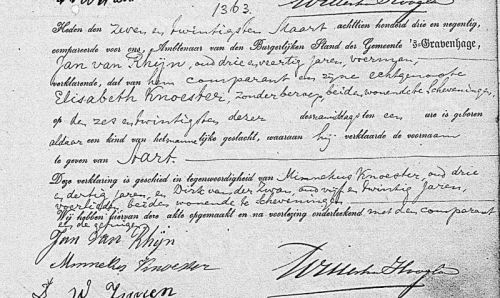 1363.
Heden den zeven en twintigsten Maart achttien honderd drie en negentig,
compareerde voor ons, Ambtenaar van den Burgerlijken Stand der Gemeente 's-Gravenhage,
Jan van Rhijn, oud drie en veertig jaren, voerman,
verklarende, dat van hem comparant en zijne echtgenoote
Elisabeth Knoester, zonder beroep, beiden wonende te Scheveningen,
op den zes en twintigsten dezer des namiddags ten een ure is geboren
aldaar een kind van het mannelijke geslacht, waaraan hij verklaarde de voornaam
te geven van Maart.
Deze verklaring is geschied in tegenwoordigheid van Minnekus Knoester, oud drie
en dertig jaren, en Dirk van der Zwan, oud vijf en twintig jaren,
voerlieden, beiden wonende te Scheveningen
Wij hebben hiervan deze akte opgemaakt en na voorlezing onderteekend met den comparant
en de getuigen.
Jan Van Rhijn
Minnekus Knoester